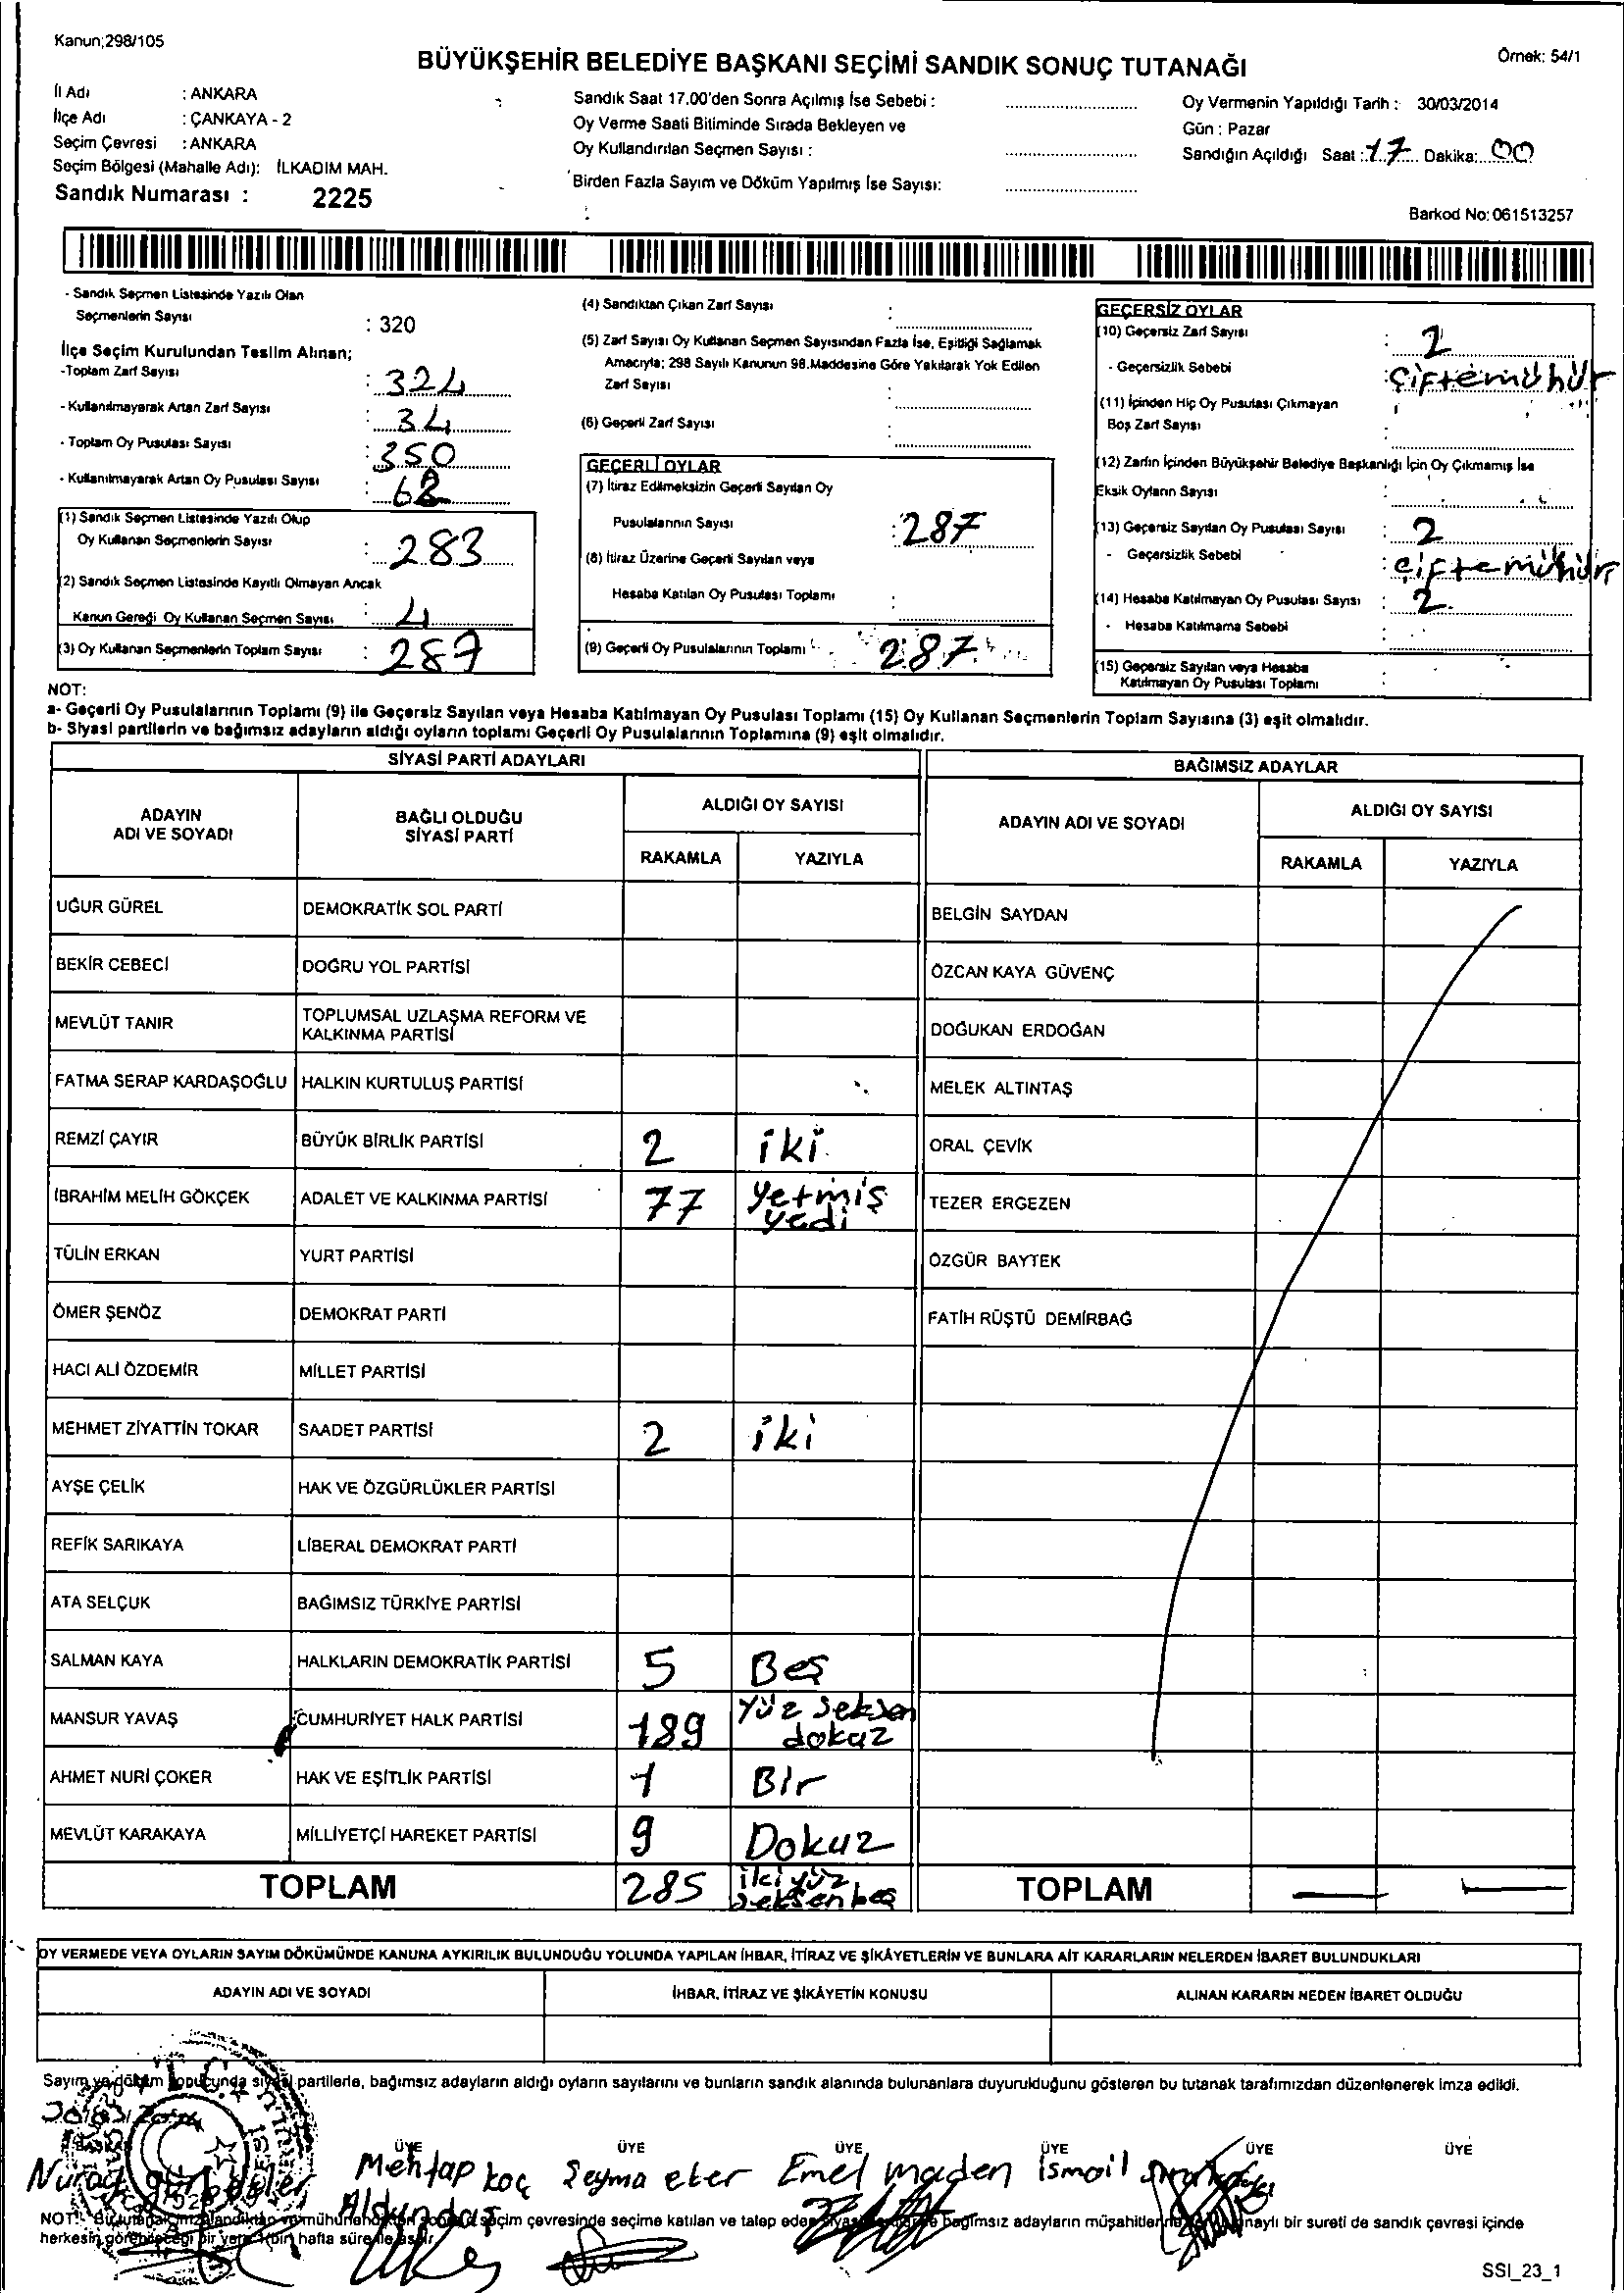 Kanun;298/105
BÜYÜKŞEHİR BELEDİYE BAŞKANI SEÇİMİ SANDIK SONUÇ TUTANAĞI
Örnek: 54/1
İl Adı : ANKARA
İlçe Adı : ÇANKAYA - 2
Seçim Çevresi : ANKARA
Seçim Bölgesi (Mahalle Adı): İLKADIM MAH.
Sandık Numarası : 2225
Sandık Saat 17.00'den Sonra Açılmış İse Sebebi :
Oy Verme Saati Bitiminde Sırada Bekleyen ve
Oy Kullandırılan Seçmen Sayısı :
Birden Fazla Sayım ve Döküm Yapılmış İse Sayısı:
Oy Vermenin Yapıldığı Tarih : 30/03/2014
Gün : Pazar
Sandığın Açıldığı Saat : 17 Dakika: 00
Barkod No: 061513257
- Sandık Seçmen Listesinde Yazılı Olan
Seçmenlerin Sayısı : 320
İlçe Seçim Kurulundan Teslim Alınan;
-Toplam Zarf Sayısı : 324
- Kullanılmayarak Artan Zarf Sayısı : 34
- Toplam Oy Pusulası Sayısı : 350
- Kullanılmayarak Artan Oy Pusulası Sayısı : 62
(1) Sandık Seçmen Listesinde Yazılı Olup
Oy Kullanan Seçmenlerin Sayısı : 283
(2) Sandık Seçmen Listesinde Kayıtlı Olmayan Ancak
Kanun Gereği Oy Kullanan Seçmen Sayısı : 4
(3) Oy Kullanan Seçmenlerin Toplam Sayısı : 287
(4) Sandıktan Çıkan Zarf Sayısı :
(5) Zarf Sayısı Oy Kullanan Seçmen Sayısından Fazla İse, Eşitliği Sağlamak
Amacıyla; 298 Sayılı Kanunun 98.Maddesine Göre Yakılarak Yok Edilen
Zarf Sayısı :
(6) Geçerli Zarf Sayısı :
GEÇERLİ OYLAR
(7) İtiraz Edilmeksizin Geçerli Sayılan Oy
Pusulalarının Sayısı : 287
(8) İtiraz Üzerine Geçerli Sayılan veya
Hesaba Katılan Oy Pusulası Toplamı :
(9) Geçerli Oy Pusulalarının Toplamı : 287
GEÇERSİZ OYLAR
(10) Geçersiz Zarf Sayısı : 2
- Geçersizlik Sebebi : çiftemühür
(11) İçinden Hiç Oy Pusulası Çıkmayan
Boş Zarf Sayısı :
(12) Zarfın İçinden Büyükşehir Belediye Başkanlığı İçin Oy Çıkmamış İse
Eksik Oyların Sayısı :
(13) Geçersiz Sayılan Oy Pusulası Sayısı : 2
- Geçersizlik Sebebi : çiftemühür
(14) Hesaba Katılmayan Oy Pusulası Sayısı : 2
- Hesaba Katılmama Sebebi :
(15) Geçersiz Sayılan veya Hesaba
Katılmayan Oy Pusulası Toplamı :
NOT:
a- Geçerli Oy Pusulalarının Toplamı (9) ile Geçersiz Sayılan veya Hesaba Katılmayan Oy Pusulası Toplamı (15) Oy Kullanan Seçmenlerin Toplam Sayısına (3) eşit olmalıdır.
b- Siyasi partilerin ve bağımsız adayların aldığı oyların toplamı Geçerli Oy Pusulalarının Toplamına (9) eşit olmalıdır.
SİYASİ PARTİ ADAYLARI
ADAYIN ADI VE SOYADI BAĞLI OLDUĞU SİYASİ PARTİ ALDIĞI OY SAYISI
RAKAMLA YAZIYLA
UĞUR GÜREL DEMOKRATİK SOL PARTİ
BEKİR CEBECİ DOĞRU YOL PARTİSİ
MEVLÜT TANIR TOPLUMSAL UZLAŞMA REFORM VE KALKINMA PARTİSİ
FATMA SERAP KARDAŞOĞLU HALKIN KURTULUŞ PARTİSİ
REMZİ ÇAYIR BÜYÜK BİRLİK PARTİSİ 2 iki
İBRAHİM MELİH GÖKÇEK ADALET VE KALKINMA PARTİSİ 77 Yetmiş yedi
TÜLİN ERKAN YURT PARTİSİ
ÖMER ŞENÖZ DEMOKRAT PARTİ
HACI ALİ ÖZDEMİR MİLLET PARTİSİ
MEHMET ZİYATTİN TOKAR SAADET PARTİSİ 2 iki
AYŞE ÇELİK HAK VE ÖZGÜRLÜKLER PARTİSİ
REFİK SARIKAYA LİBERAL DEMOKRAT PARTİ
ATA SELÇUK BAĞIMSIZ TÜRKİYE PARTİSİ
SALMAN KAYA HALKLARIN DEMOKRATİK PARTİSİ 5 Beş
MANSUR YAVAŞ CUMHURİYET HALK PARTİSİ 189 Yüz seksen dokuz
AHMET NURİ ÇOKER HAK VE EŞİTLİK PARTİSİ 1 Bir
MEVLÜT KARAKAYA MİLLİYETÇİ HAREKET PARTİSİ 9 Dokuz
TOPLAM 285 ikiyüz seksen beş
BAĞIMSIZ ADAYLAR
ADAYIN ADI VE SOYADI ALDIĞI OY SAYISI
RAKAMLA YAZIYLA
BELGİN SAYDAN
ÖZCAN KAYA GÜVENÇ
DOĞUKAN ERDOĞAN
MELEK ALTINTAŞ
ORAL ÇEVİK
TEZER ERGEZEN
ÖZGÜR BAYTEK
FATİH RÜŞTÜ DEMİRBAĞ
TOPLAM
OY VERMEDE VEYA OYLARIN SAYIM DÖKÜMÜNDE KANUNA AYKIRILIK BULUNDUĞU YOLUNDA YAPILAN İHBAR, İTİRAZ VE ŞİKÂYETLERİN VE BUNLARA AİT KARARLARIN NELERDEN İBARET BULUNDUKLARI
ADAYIN ADI VE SOYADI İHBAR, İTİRAZ VE ŞİKÂYETİN KONUSU ALINAN KARARIN NEDEN İBARET OLDUĞU
Sayım ve döküm sonucunda siyasi partilerle, bağımsız adayların aldığı oyların sayılarını ve bunların sandık alanında bulunanlara duyurulduğunu gösteren bu tutanak tarafımızdan düzenlenerek imza edildi.
BAŞKAN ÜYE ÜYE ÜYE ÜYE ÜYE ÜYE
Mehtap Koç Şeyma eter Emel maden İsmail
NOT: Bu tutanak imzalandıktan ve mühürlendikten sonra seçim çevresinde seçime katılan ve talep eden siyasi bağımsız adayların müşahitlerine onaylı bir sureti de sandık çevresi içinde
herkesin görebileceği bir yere bir hafta süre ile asılır.
SSI_23_1